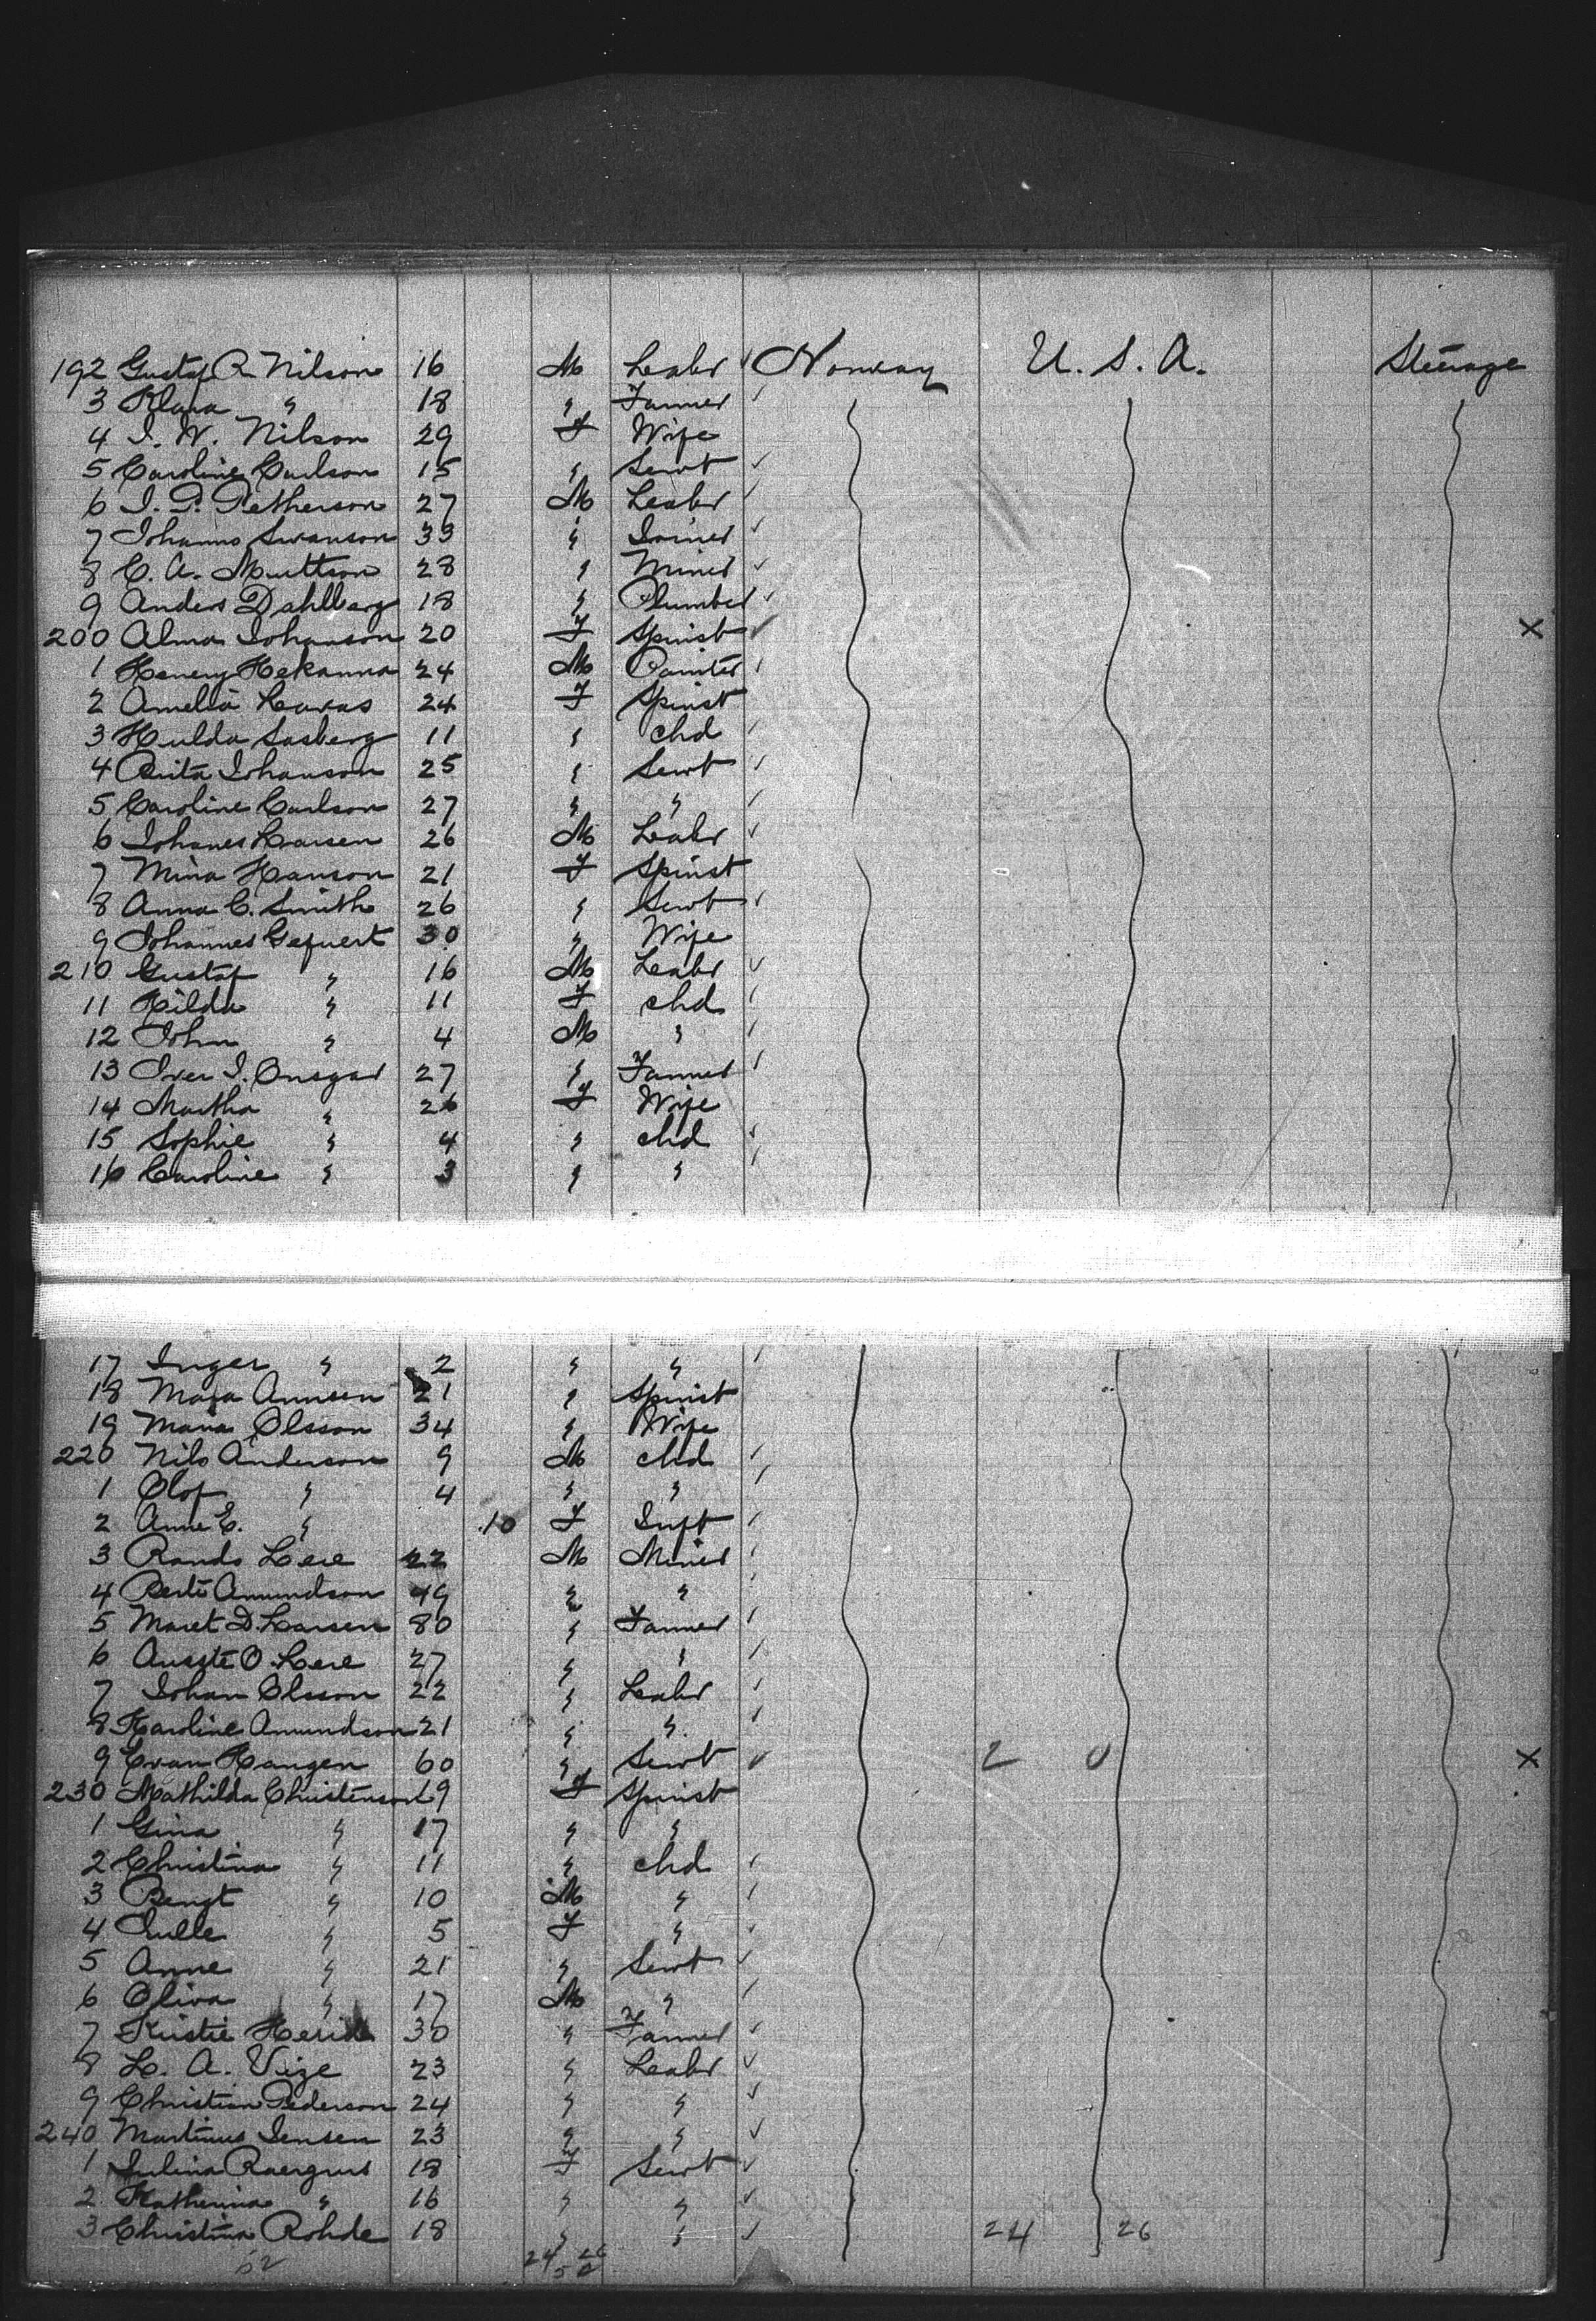 192 Gustaf A. Nilson 16 M Labr Norway U. S. A. Steerage
3 Klara " 18 " Farmer
4 I. W. Nilson 29 F Wife
5 Caroline Carlson 15 " Servt
6 I. P. Petherson 27 M Labr
7 Johanns Swanson 33 " Joiner
8 C. A. Muttson 28 " Miner
9 Anders Dahlberg 18 " Plumber
200 Alma Johanson 20 F Spinst X
1 Henery Hekanna 24 M Painter
2 Amelia 24 F Spinst
3 Hulda Sasberg 11 " chd
4 Brita Johanson 25 " Servt
5 Caroline Carlson 27 " "
6 Johanes Larsen 26 M Labr
7 Mina Hanson 21 F Spinst
8 Anna C. Smith 26 " Servt
9 Johannes Gefvert 30 " Wife
210 Gustaf " 16 M Labr
11 Hilda " 11 F chd
12 John " 4 M "
13 Iver I. Onsgar 27 " Farmer
14 Martha " 26 F Wife
15 Sophie " 4 " chd
16 Caroline " 3 " "
17 Inger " 2 " "
18 Maja Annsen 21 " Spinst
19 Maria Olsson 34 " Wife
220 Nils Anderson 9 M chd
1 Olof " 4 " "
2 Anne E. " 10 F Inft
3 Rands Lere 22 M Miner
4 Berte Amundson 49 " "
5 Maret D. Larsen 80 " Farmer
6 O. Lere 27 " "
7 Johan Olsson 22 " Labr
8 Karoline Amundson 21 " "
9 Evan Haugen 60 " Servt 2 0 X
230 Mathilda Christenson 19 F Spinst
1 Gina " 17 " "
2 Christina " 11 " chd
3 Bengt " 10 M "
4 Julle " 5 F "
5 Anne " 21 " Servt
6 Oliva " 17 M "
7 Kristie 30 " Farmer
8 L. A. Vige 23 " Labr
9 Christian Pederson 24 " "
240 Martinus Jensen 23 " "
1 Julina 18 F Servt
2 Katherina " 16 " "
3 Christina Rohde 18 " " 24 26
52 24 26